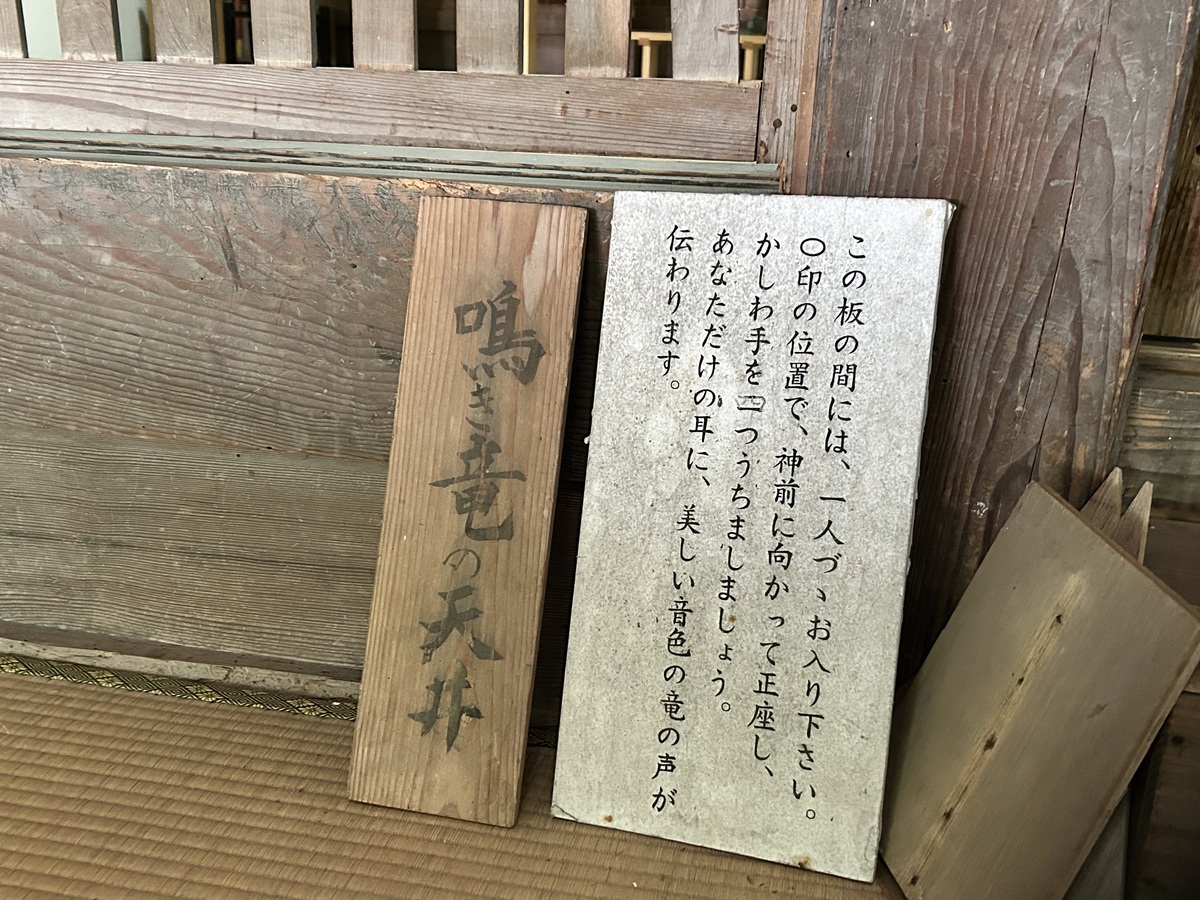 この板の間には、一人づゝお入り下さい。
〇印の位置で、神前に向かって正座し、
かしわ手を四つうちましましょう。
あなただけの耳に、美しい音色の竜の声が
伝わります。
鳴き竜の天井